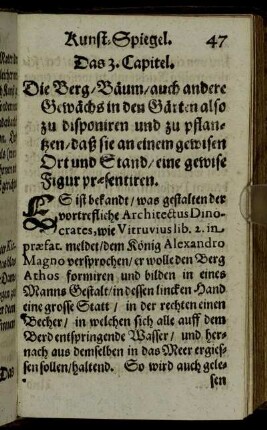 Kunst-Spiegel. 47
Das 3. Capitel.
Die Berg/Bäum/auch andere
Gewächs in den Gärten also
zu disponiren und zu pflan-
tzen/daß sie an einem gewisen
Ort und Stand/eine gewise
Figur præsentiren.
ES ist bekandt/was gestalten der
vortrefliche Architectus Dino-
crates, wie Vitruvius lib. 2. in
præfat. meldet/dem König Alexandro
Magno versprochen/er wolle den Berg
Athos formiren und bilden in eines
Manns Gestalt/in dessen lincken Hand
eine grosse Statt / in der rechten einen
Becher/ in welchen sich alle auff dem
Berd entspringende Wasser/ und her-
nach aus demselben in das Meer ergies-
sen sollen/haltend. So wird auch gele-
sen